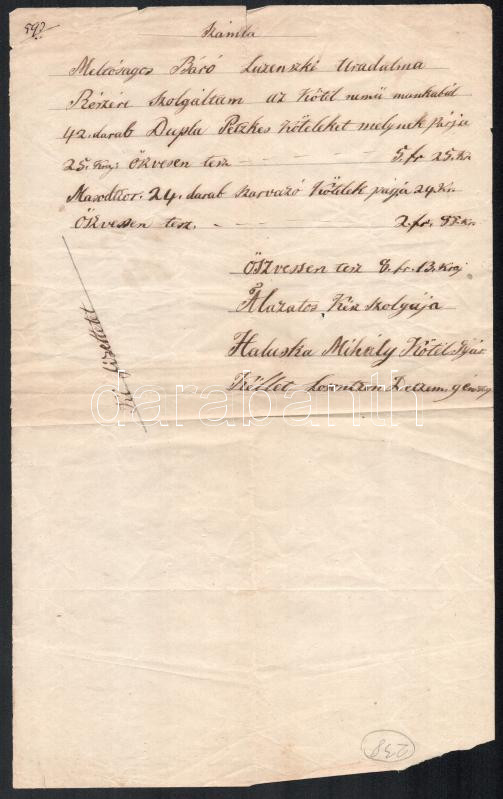 592
Számla
Méltóságos Báró Luzenszki Uradalma
Részére szolgáltam az Kötil nemü munkabúl
42. darab Dupla Petzkes Köteleket melynek párja
25. Kraj. Öszvesen tesz — — — — 5. fr 25. Kr.
Masodszor. 24. darab szarvazó Kötelek párja 24 Kr.
Öszvessen tesz. — — — 2. fr.
Öszvessen tesz 8. fr. 13. Kraj
Alázatos Kész szolgája
Haluska Mihály Kötil Gyár.
Költ Losontzon Decem. 9
Ki fizettetett
Darabanth
238